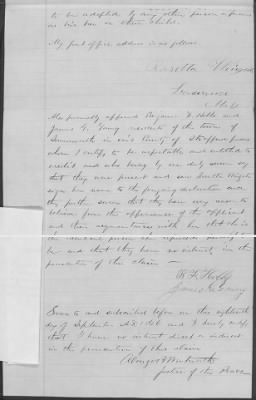 to be adopted by any other person or persons
as his own or their child.
My post office address is as follows
Lawrence
Mass
Also personally appeared Benjamin F. Hobbs and
James G. Young residents of the town of
in said County of Strafford persons
whom I certify to be respectable and entitled to
credit and who being by me duly sworn say
that they were present and saw
sign her name to the foregoing declaration and
they further swear that they have every reason to
believe from the appearance of the applicant
and their acquaintance with her that she is
the identical person she represents herself to
be and that they have no interest in the
prosecution of this claim
B. F. Hobbs
James G. Young
Sworn to and subscribed before me this eighteenth
day of September A.D. 1866 and I hereby certify
that I have no interest direct or indirect
in the prosecution of this claim
Wentworth
Justice of the Peace